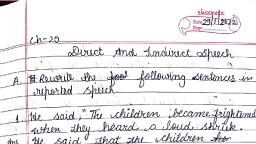 classmate
Date 29/7/2022
Page
Ch-20
Direct And Indirect Speech
A. Rewrite the following sentences in
reported speech.
1. He said, "The children became frightened
when they heard a loud shriek.
Ans. He said that the children